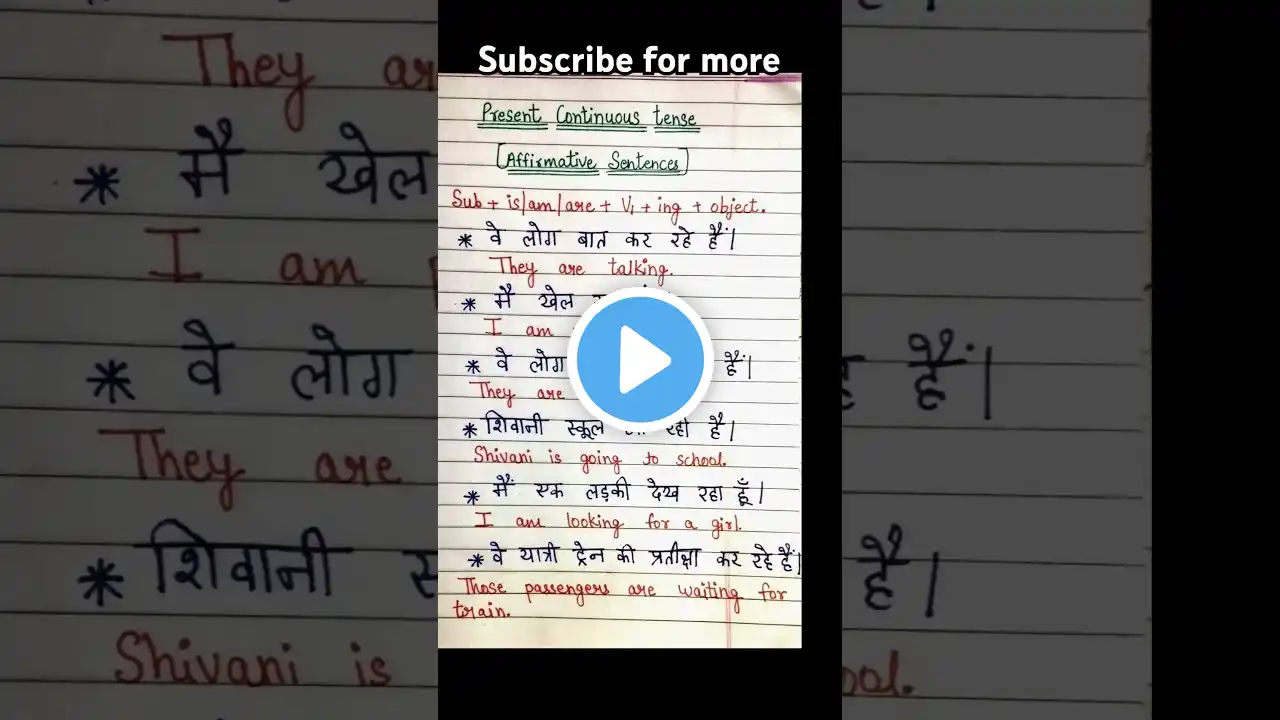 Subscribe for more
Present Continuous tense
[Affirmative Sentences]
Sub + is/am/are + V₁ + ing + object.
* वे लोग बात कर रहे हैं।
They are talking.
* मैं खेल
I am
* वे लोग हैं।
They are
* शिवानी स्कूल रही है।
Shivani is going to school.
* मैं एक लड़की देख रहा हूँ।
I am looking for a girl.
* वे यात्री ट्रेन की प्रतीक्षा कर रहे हैं।
Those passengers are waiting for
train.